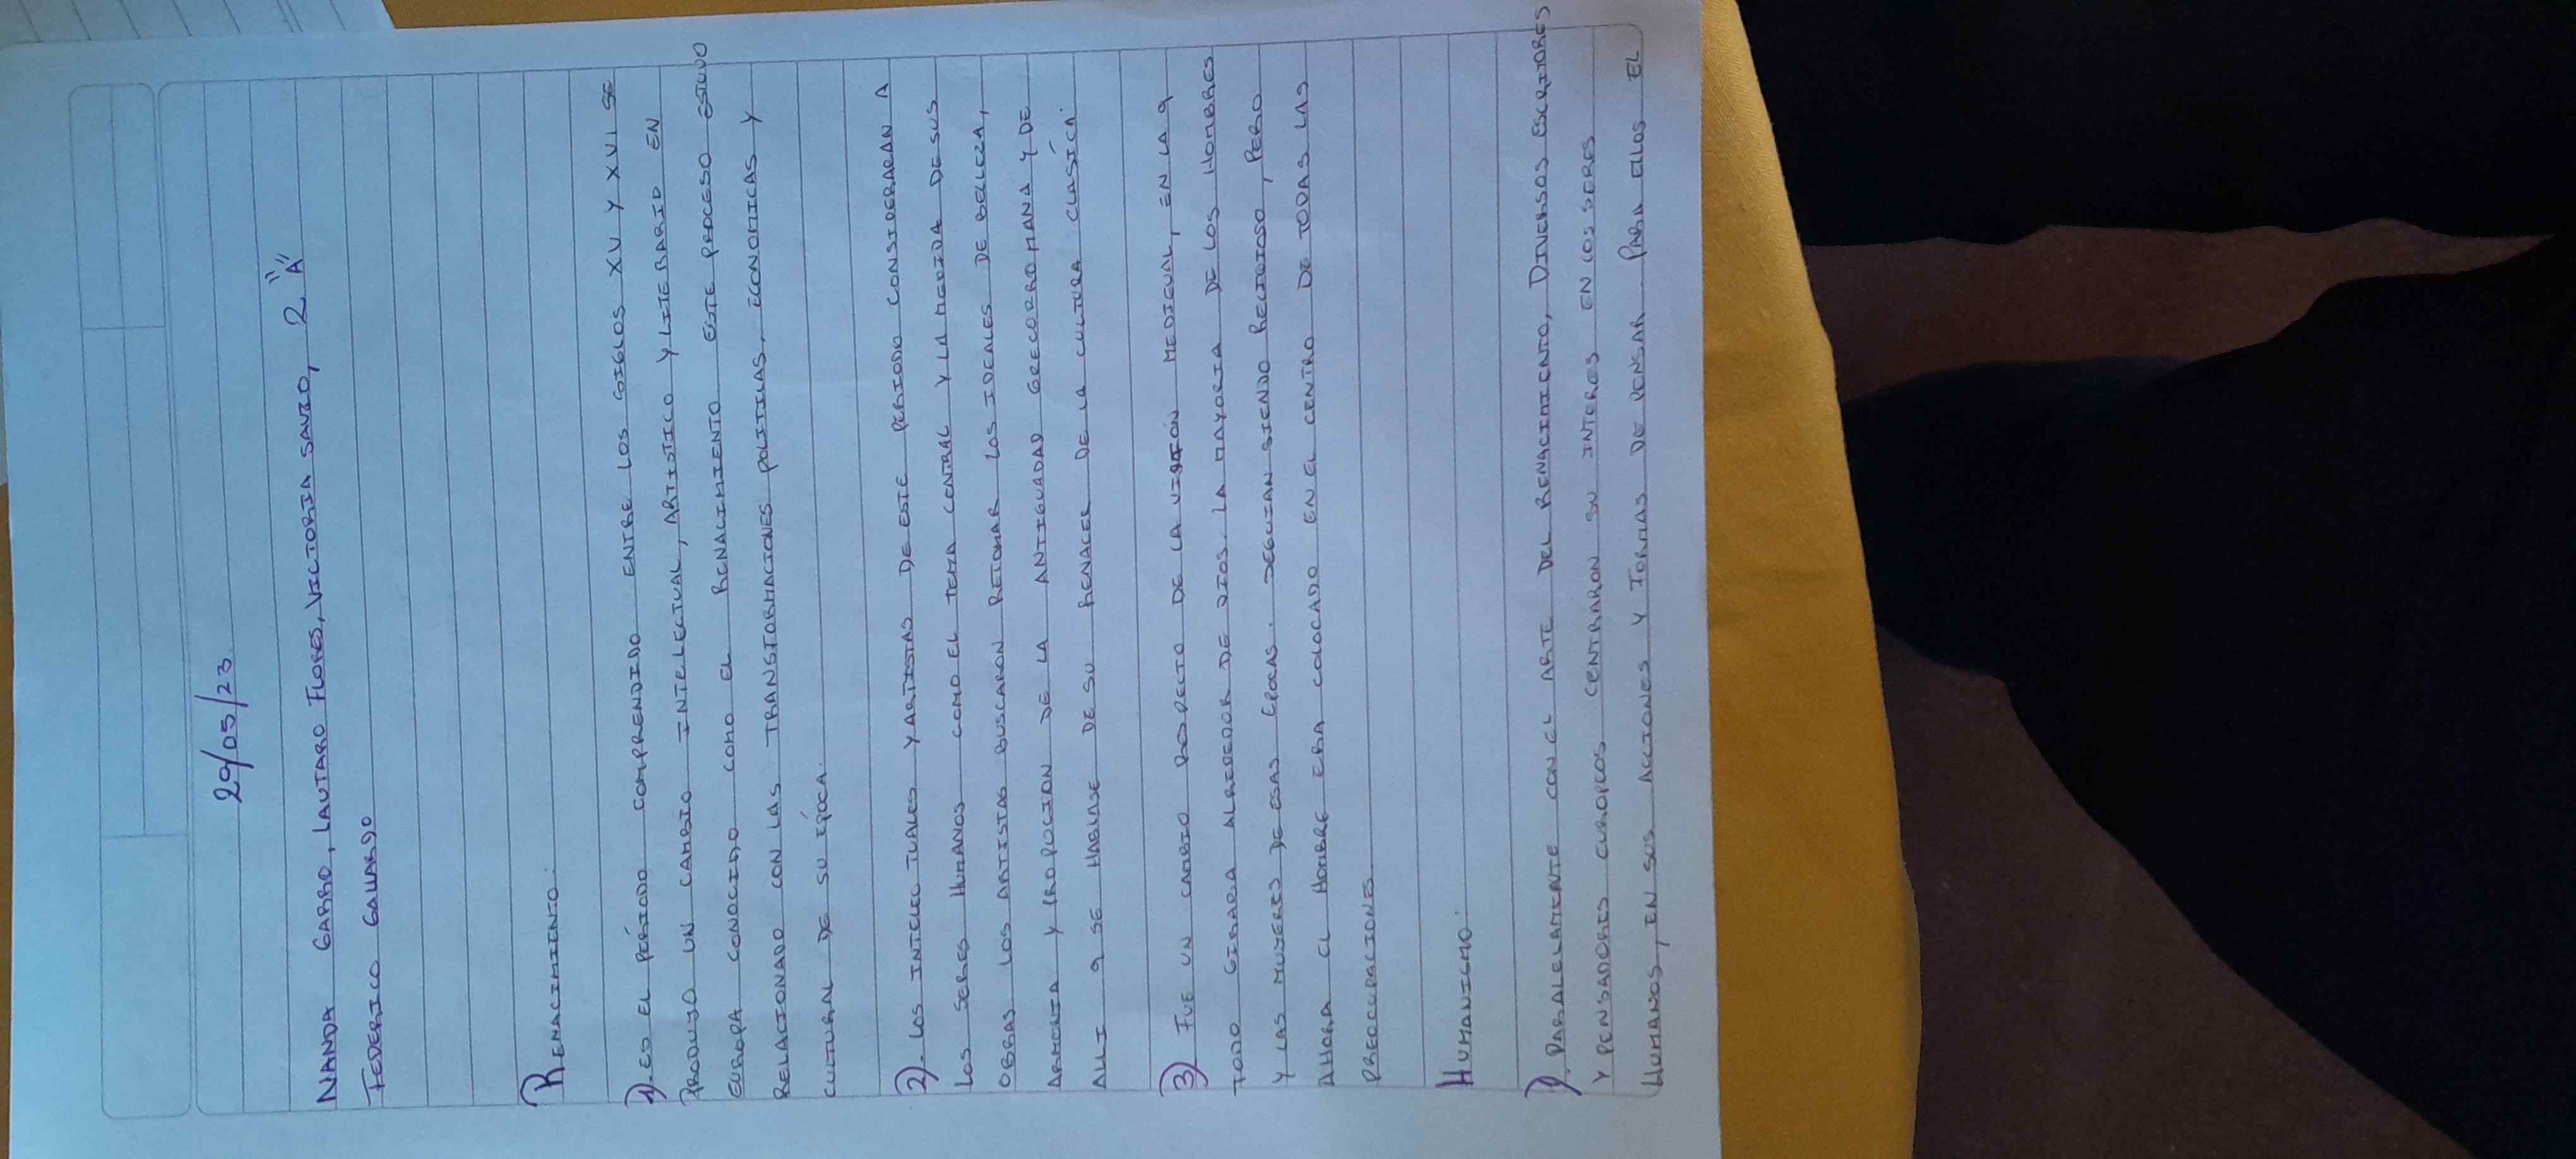 29/05/23
NANDA GARRO, LAUTARO FLORES, VICTORIA SAVIO, 2 "A"
FEDERICO GALLARDO
RENACIMIENTO:
1). ES EL PÉRIODO COMPRENDIDO ENTRE LOS SIGLOS XV Y XVI SE
PRODUJO UN CAMBIO INTELECTUAL, ARTISTICO Y LITERARIO EN
EUROPA CONOCIDO COMO EL RENACIMIENTO ESTE PROCESO ESTUVO
RELACIONADO CON LAS TRANSFORMACIONES POLITICAS, ECONOMICAS Y
CULTURAL DE SU ÉPOCA.
2). LOS INTELECTUALES Y ARTISTAS DE ESTE PERIODO CONSIDERARAN A
LOS SERES HUMANOS COMO EL TEMA CENTRAL Y LA MEDIDA DE SUS
OBRAS LOS ARTISTAS BUSCARON RETOMAR LOS IDEALES DE BELLEZA,
ARMORIA Y PROPOCION DE LA ANTIGUADAD GRECORROMANA Y DE
ALLI Q SE HABLASE DE SU RENACER DE LA CULTURA CLASÍCA.
3) FUE UN CAMBIO RESPECTO DE LA VISIÓN MEDIEUAL, EN LA Q
TODO GIRABA ALREDEDOR DE DIOS. LA MAYORIA DE LOS HOMBRES
Y LAS MUJERES DE ESAS EPOCAS. SEGUIAN SIENDO RELIGIOSO, PERO
AHORA EL HOMBRE ERA COLOCADO EN EL CENTRO DE TODAS LAS
PREOCUPACIONES
HUMANISMO:
1). PARALELAMENTE CON EL ARTE DEL RENACIMIENTO, DIVERSOS ESCRITORES
Y PENSADORES EUROPEOS CENTRARON SU INTERES EN LOS SERES
HUMANOS, EN SUS ACCIONES Y FORMAS DE PENSAR PARA ELLOS EL